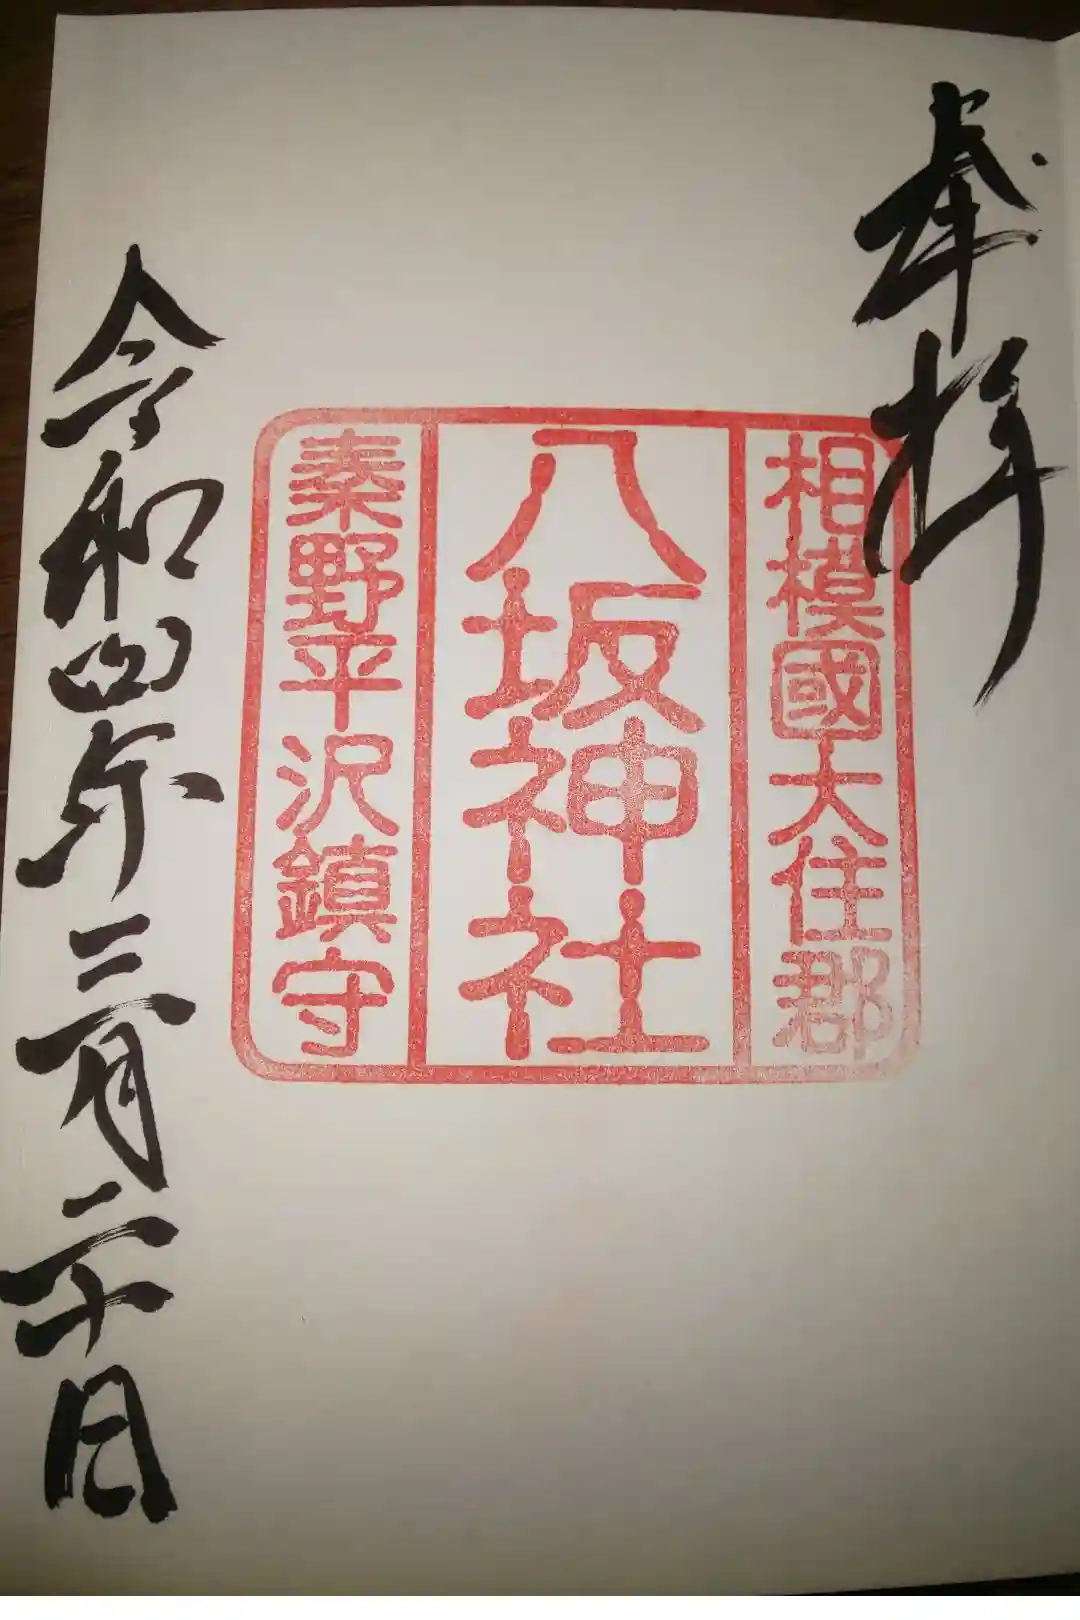 奉拝
相模國大住郡
八坂神社
秦野平沢鎮守
令和四年三月二十日